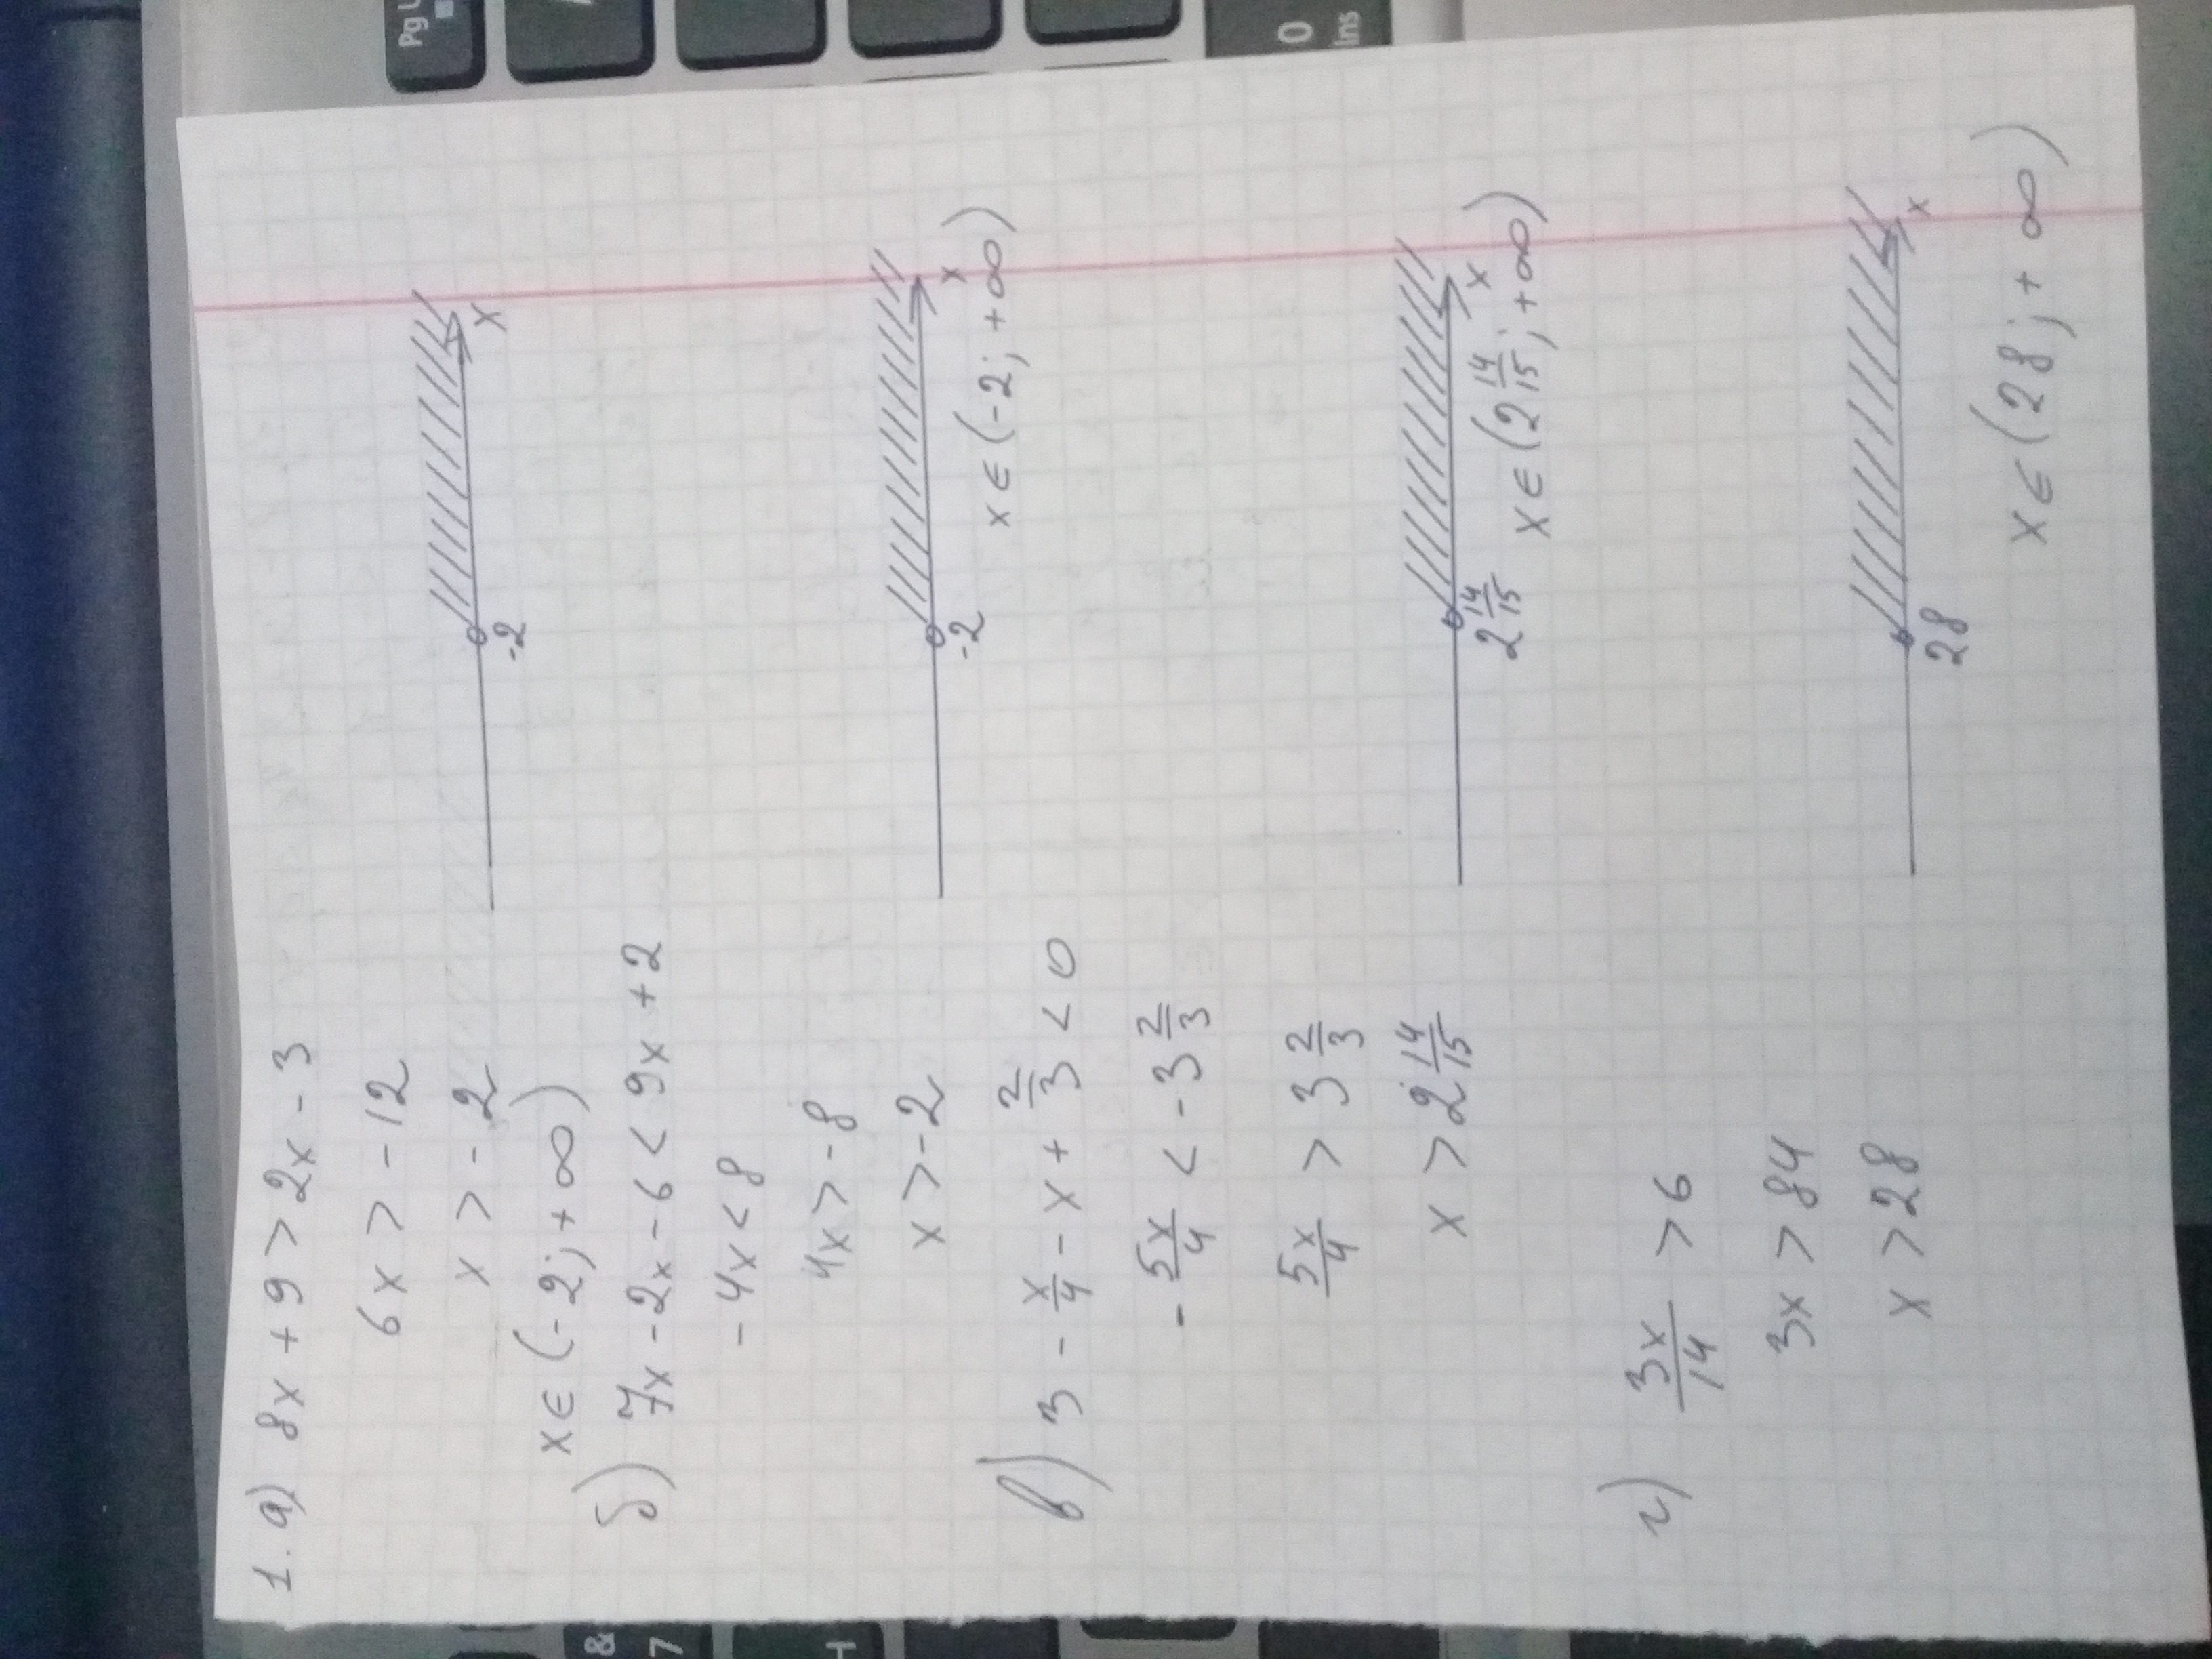 1. а) 8x + 9 > 2x - 3
6x > -12
x > -2
-2
x
x ∈ (-2; +∞)
б) 7x - 2x - 6 < 9x + 2
-4x < 8
4x > -8
x > -2
-2
x
x ∈ (-2; +∞)
в) 3 - x/4 - x + 2/3 < 0
- 5x/4 < -3 2/3
5x/4 > 3 2/3
x > 2 14/15
2 14/15
x
x ∈ (2 14/15; +∞)
г) 3x/14 > 6
3x > 84
x > 28
28
x
x ∈ (28; +∞)
0
Ins
&
7